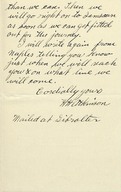 than we can. Then we
will go right on to Sams[...]
as soon as we can get fitted
out for the journey.
I will write again from
Naples telling you know
just when we'll reach
you & on what line we
will come.
Cordially yours
Atkinson
Mailed at Gibralter